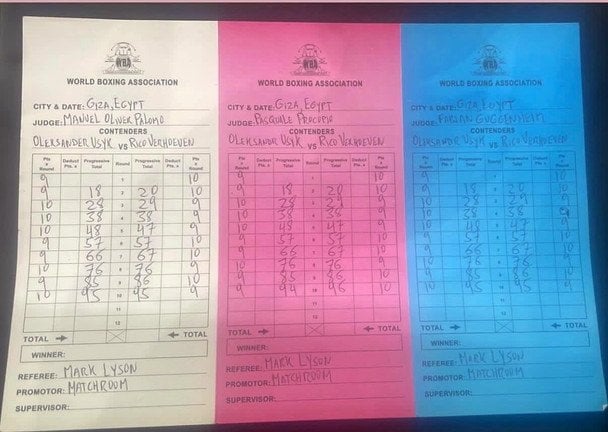 WBA
WORLD BOXING ASSOCIATION
CITY & DATE: GIZA, EGYPT
JUDGE: MANUEL OLIVER PALOMO
CONTENDERS
OLEKSANDER USYK VS RICO VERHOEVEN
Pts x Round Deduct Pts. x Progressive Total Round Progressive Total Deduct Pts. x Pts x Round
9 1 10
9 18 2 20 10
10 28 3 29 9
10 38 4 38 9
10 48 5 47 9
9 57 6 57 10
9 66 7 67 10
10 76 8 76 9
9 85 9 86 10
10 95 10 95 9
11
12
TOTAL → ← TOTAL
WINNER:
REFEREE: MARK LYSON
PROMOTOR: MATCHROOM
SUPERVISOR:
WBA
WORLD BOXING ASSOCIATION
CITY & DATE: GIZA, EGYPT
JUDGE: PASQUALE PROCOPIO
CONTENDERS
OLEKSANDER USYK VS RICO VERHOEVEN
Pts x Round Deduct Pts. x Progressive Total Round Progressive Total Deduct Pts. x Pts x Round
9 1 10
9 18 2 20 10
10 28 3 29 9
10 38 4 38 9
10 48 5 47 9
9 57 6 57 10
9 66 7 67 10
10 76 8 76 9
9 85 9 86 10
9 94 10 96 10
11
12
TOTAL → ← TOTAL
WINNER:
REFEREE: MARK LYSON
PROMOTOR: MATCHROOM
SUPERVISOR:
WBA
WORLD BOXING ASSOCIATION
CITY & DATE: GIZA, EGYPT
JUDGE: FABIAN GUGGENHEIM
CONTENDERS
OLEKSANDER USYK VS RICO VERHOEVEN
Pts x Round Deduct Pts. x Progressive Total Round Progressive Total Deduct Pts. x Pts x Round
9 1 10
9 18 2 20 10
10 28 3 29 9
10 38 4 38 9
10 48 5 47 9
9 57 6 57 10
9 66 7 67 10
10 76 8 76 9
9 85 9 86 10
10 95 10 95 9
11
12
TOTAL → ← TOTAL
WINNER:
REFEREE: MARK LYSON
PROMOTOR: MATCHROOM
SUPERVISOR: